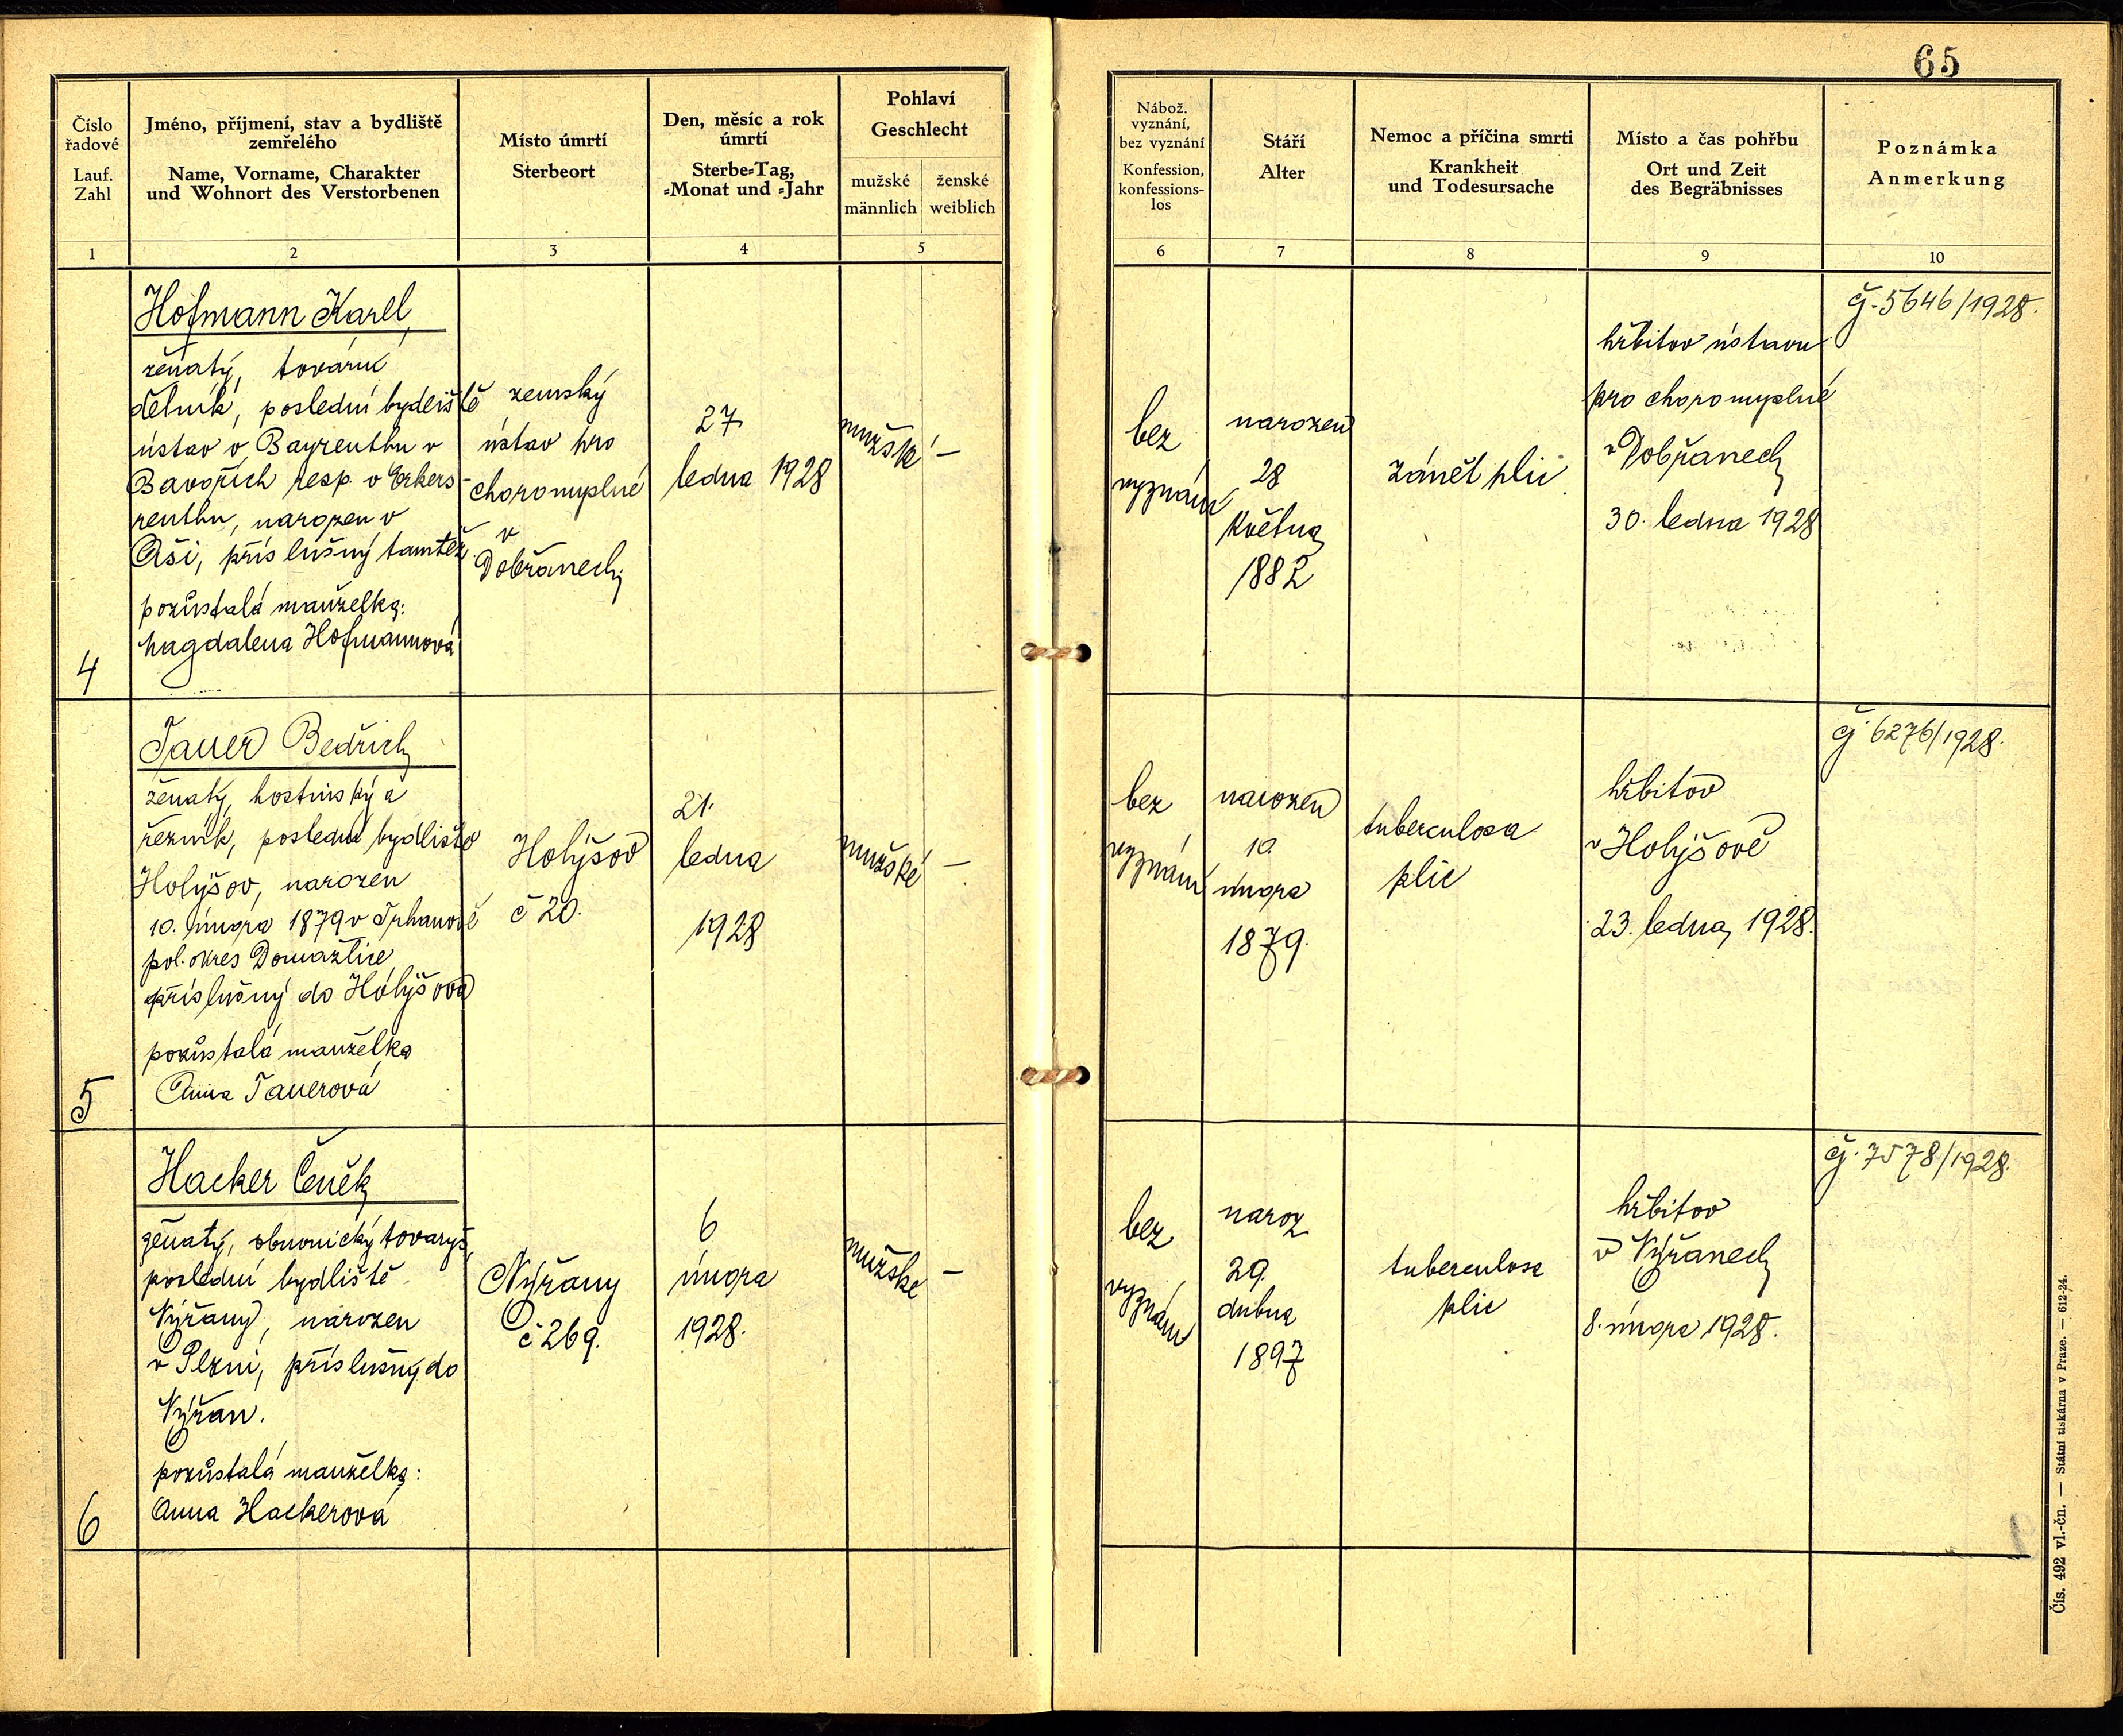 65
Číslo
řadové
Lauf.
Zahl
Jméno, příjmení, stav a bydliště
zemřelého
Name, Vorname, Charakter
und Wohnort des Verstorbenen
Místo úmrtí
Sterbeort
Den, měsíc a rok
úmrtí
Sterbe-Tag,
-Monat und -Jahr
Pohlaví
Geschlecht
mužské
männlich
ženské
weiblich
Nábož.
vyznání,
bez vyznání
Konfession,
konfessions-
los
Stáří
Alter
Nemoc a příčina smrti
Krankheit
und Todesursache
Místo a čas pohřbu
Ort und Zeit
des Begräbnisses
Poznámka
Anmerkung
1
2
3
4
5
6
7
8
9
10
4
Hofmann Karel
ženatý, tovární
dělník, poslední bydliště
ústav v Bayreuthu v
Bavořích resp. v Erkers-
reuthu, narozen v
Aši, příslušný tamtéž
pozůstalá manželka:
Magdalena Hofmannová
zemský
ústav pro
choromyslné
v
Dobřanech
27
ledna 1928
mužské –
bez
vyznání
narozen
28
května
1882
zánět plic
hřbitov ústavu
pro choromyslné
v Dobřanech
30. ledna 1928
čj. 5646/1928.
5
Tauer Bedřich
ženatý, hostinský a
řezník, poslední bydliště
Holýšov, narozen
10. února 1879 v Trhanově
pol. okres Domažlice
příslušný do Holýšova
pozůstalá manželka
Anna Tauerová
Holýšov
č 20.
21.
ledna
1928
mužské –
bez
vyznání
narozen
10.
února
1879.
tuberculosa
plic
hřbitov
v Holýšově
23. ledna 1928.
čj 6276/1928.
6
Hacker Čeněk
ženatý, obuvnický tovaryš,
poslední bydliště
Nýřany, narozen
v Plzni, příslušný do
Nýřan.
pozůstalá manželka:
Anna Hackerová
Nýřany
č 269.
6
února
1928.
mužské –
bez
vyznání
naroz
29.
dubna
1897
tuberculosa
plic
hřbitov
v Nýřanech
8. února 1928.
čj. 7578/1928.
Čís. 492 vl.-čn. — Státní tiskárna v Praze. — 612-24.